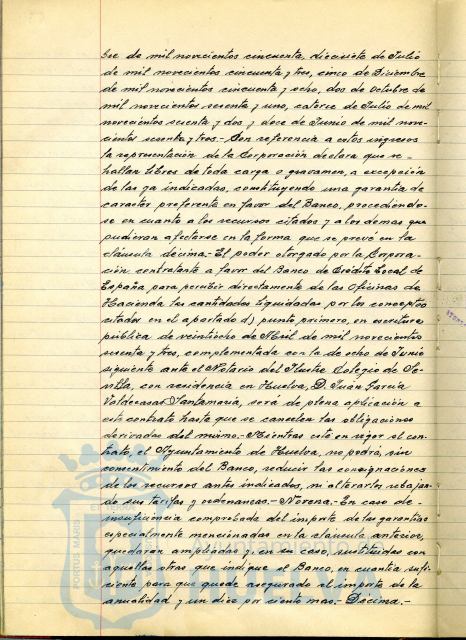 bre de mil novecientos cincuenta, diecisiete de Julio
de mil novecientos cincuenta y tres, cinco de Diciembre
de mil novecientos cincuenta y ocho, dos de Octubre de
mil novecientos sesenta y uno, catorce de Julio de mil
novecientos sesenta y dos y doce de Junio de mil nove-
cientos sesenta y tres.- Con referencia a estos ingresos
la representación de la Corporación declara que se
hallan libres de toda carga o gravamen, a excepción
de las ya indicadas, constituyendo una garantía de
caracter preferente en favor del Banco, procediendo-
se en cuanto a los recursos citados y a los demas que
pudieran afectarse en la forma que se prevé en la
cláusula décima.- El poder otorgado por la Corpora-
ción contratante a favor del Banco de Crédito Local de
España para percibir directamente de las Oficinas de
Hacienda las cantidades liquidadas por los conceptos
citados en el apartado d) punto primero, en escritura
pública de veintiocho de Abril de mil novecientos
sesenta y tres, complementada con la de ocho de Junio
siguiente ante el Notario del Ilustre Colegio de Se-
villa, con residencia en Huelva, D. Juán García
Valdecasas Santamaría, será de plena aplicación a
este contrato hasta que se cancelen las obligaciones
derivadas del mismo.- Mientras esté en vigor el con-
trato, el Ayuntamiento de Huelva, no podrá, sin
consentimiento del Banco, reducir las consignaciones
de los recursos antes indicados, ni alterarles, rebajan-
do sus tarifas y ordenanzas.- Novena.- En caso de
insuficiencia comprobada del importe de las garantías
especialmente mencionadas en la cláusula anterior,
quedarán ampliadas y, en su caso, sustituidas con
aquellas otras que indique el Banco, en cuantía sufi-
ciente para que quede asegurado el importe de la
anualidad y un diez por ciento mas.- Décima.-
PORTUS MARIS
ET TERRAE
Ayuntamiento
HUELVA